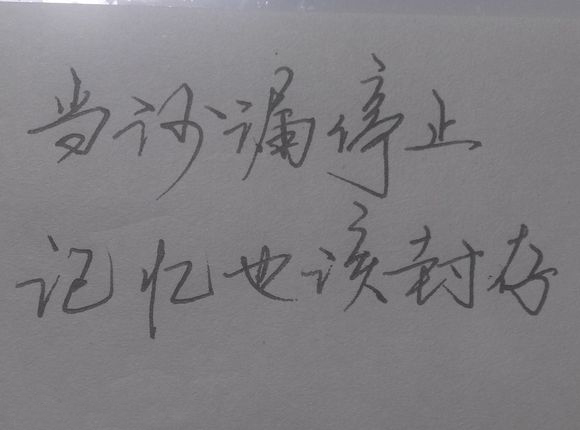 当沙漏停止
记忆也该封存